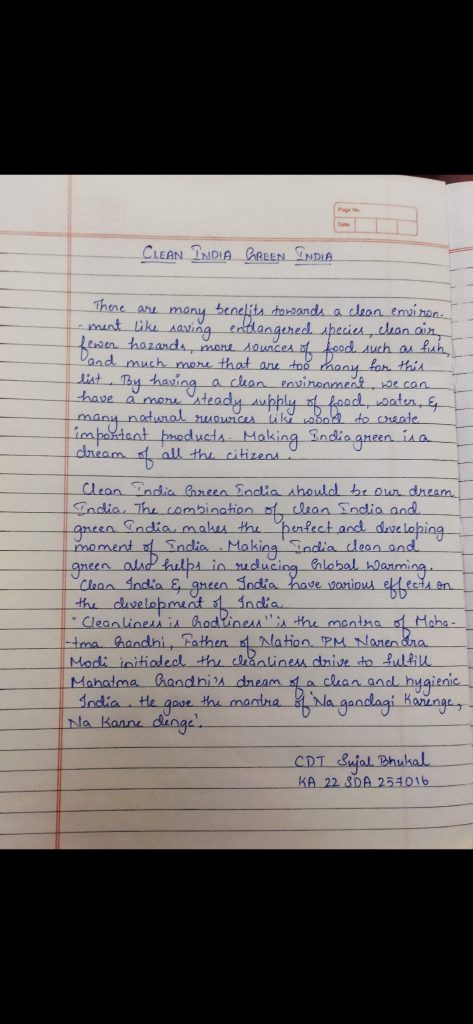 Page No.
Date
CLEAN INDIA GREEN INDIA
There are many benefits towards a clean environ-
-ment like saving endangered species, clean air,
fewer hazards, more sources of food such as fish,
and much more that are too many for this
list. By having a clean environment, we can
have a more steady supply of food, water, &
many natural resources like wood to create
important products. Making India green is a
dream of all the citizens.
Clean India Green India should be our dream
India. The combination of clean India and
green India makes the perfect and developing
moment of India. Making India clean and
green also helps in reducing Global Warming.
Clean India & green India have various effects on
the development of India
"Cleanliness is Godliness" is the mantra of Maha-
-tma Gandhi, Father of Nation. PM Narendra
Modi initiated the cleanliness drive to fulfill
Mahatma Gandhi's dream of a clean and hygienic
India. He gave the mantra of 'Na gandagi Karenge,
Na Karne denge'.
CDT Sujal Bhukal
KA 22 SDA 257016